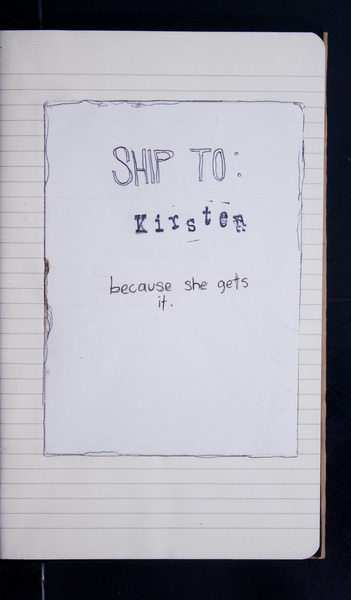 SHIP TO:
Kirsten
because she gets
it.